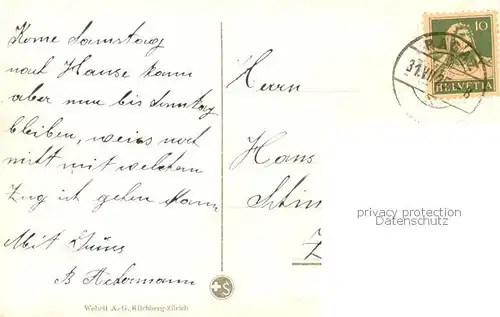 Kome Samstag
nach Hause kann
aber nur bis Sonntag
bleiben, weiss noch
nicht mit welchem
Zug ich gehen kann
Mit Grüss
B. Ackermann
Herrn
Hans
10
HELVETIA
31.VII
privacy protection
Datenschutz
S
Wehrli A.-G., Kilchberg-Zürich